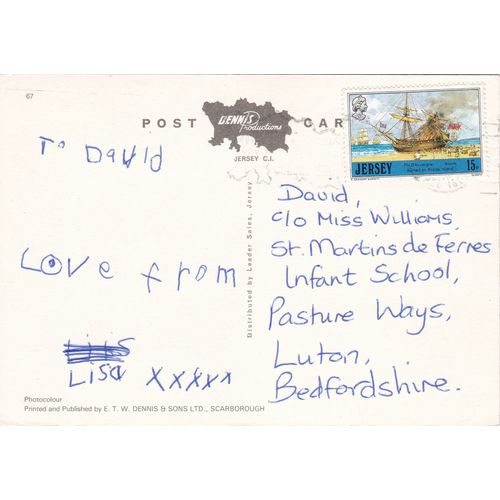 67
POST CARD
DENNIS
Productions
JERSEY C.I.
JERSEY 15P
To David
Love from
Lisa xxxxx
David,
c/o Miss Williams,
St. Martins de Ferres
Infant School,
Pasture Ways,
Luton,
Bedfordshire.
Distributed by Leader Sales, Jersey
Photocolour
Printed and Published by E. T. W. DENNIS & SONS LTD., SCARBOROUGH